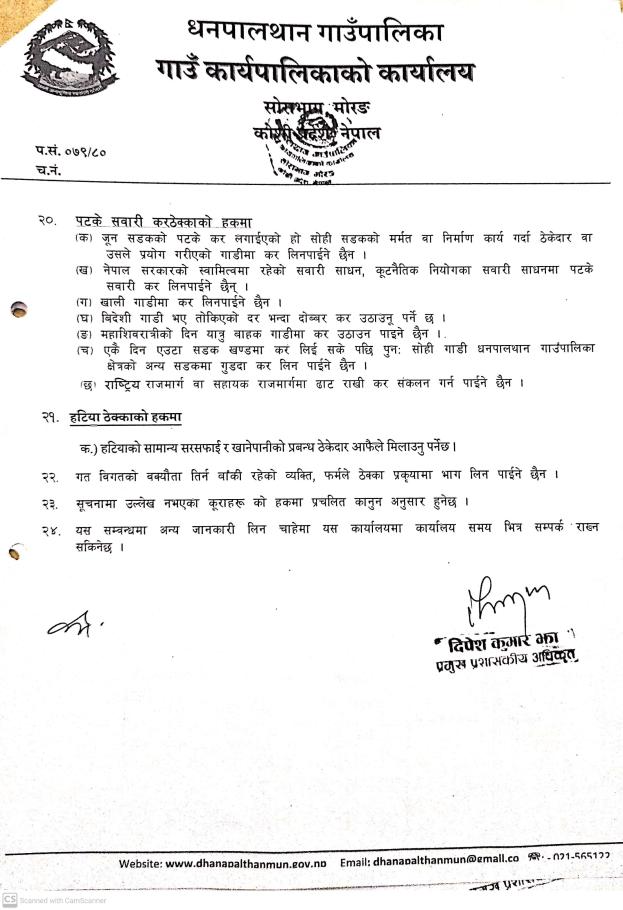 धनपालथान गाउँपालिका
गाउँ कार्यपालिकाको कार्यालय
सोराभाग, मोरङ
कोशी प्रदेश, नेपाल
प.सं. ०७९/८०
च.नं.
२०. पटके सवारी करठेक्काको हकमा
(क) जून सडकको पटके कर लगाईएको हो सोही सडकको मर्मत वा निर्माण कार्य गर्दा ठेकेदार वा
उसले प्रयोग गरीएको गाडीमा कर लिनपाईने छैन ।
(ख) नेपाल सरकारको स्वामित्वमा रहेको सवारी साधन, कूटनैतिक नियोगका सवारी साधनमा पटके
सवारी कर लिनपाईने छैन् ।
(ग) खाली गाडीमा कर लिनपाईने छैन ।
(घ) बिदेशी गाडी भए तोकिएको दर भन्दा दोब्बर कर उठाउनू पर्ने छ ।
(ङ) महाशिवरात्रीको दिन यात्रु वाहक गाडीमा कर उठाउन पाइने छैन ।
(च) एकै दिन एउटा सडक खण्डमा कर लिई सके पछि पुन: सोही गाडी धनपालथान गाउँपालिका
क्षेत्रको अन्य सडकमा गुडदा कर लिन पाईने छैन ।
(छ) राष्ट्रिय राजमार्ग वा सहायक राजमार्गमा ढाट राखी कर संकलन गर्न पाईने छैन ।
२१. हटिया ठेक्काको हकमा
क.) हटियाको सामान्य सरसफाई र खानेपानीको प्रबन्ध ठेकेदार आफैले मिलाउनु पर्नेछ।
२२. गत विगतको बक्यौता तिर्न वाँकी रहेको व्यक्ति, फर्मले ठेक्का प्रकृयामा भाग लिन पाईने छैन ।
२३. सूचनामा उल्लेख नभएका कूराहरू को हकमा प्रचलित कानुन अनुसार हुनेछ ।
२४. यस सम्बन्धमा अन्य जानकारी लिन चाहेमा यस कार्यालयमा कार्यालय समय भित्र सम्पर्क राख्न
सकिनेछ ।
दिपेश कुमार झा
प्रमुख प्रशासकीय अधिकृत
Website: www.dhanapalthanmun.gov.np Email: dhanapalthanmun@gmail.co - 021-565122
CS Scanned with CamScanner